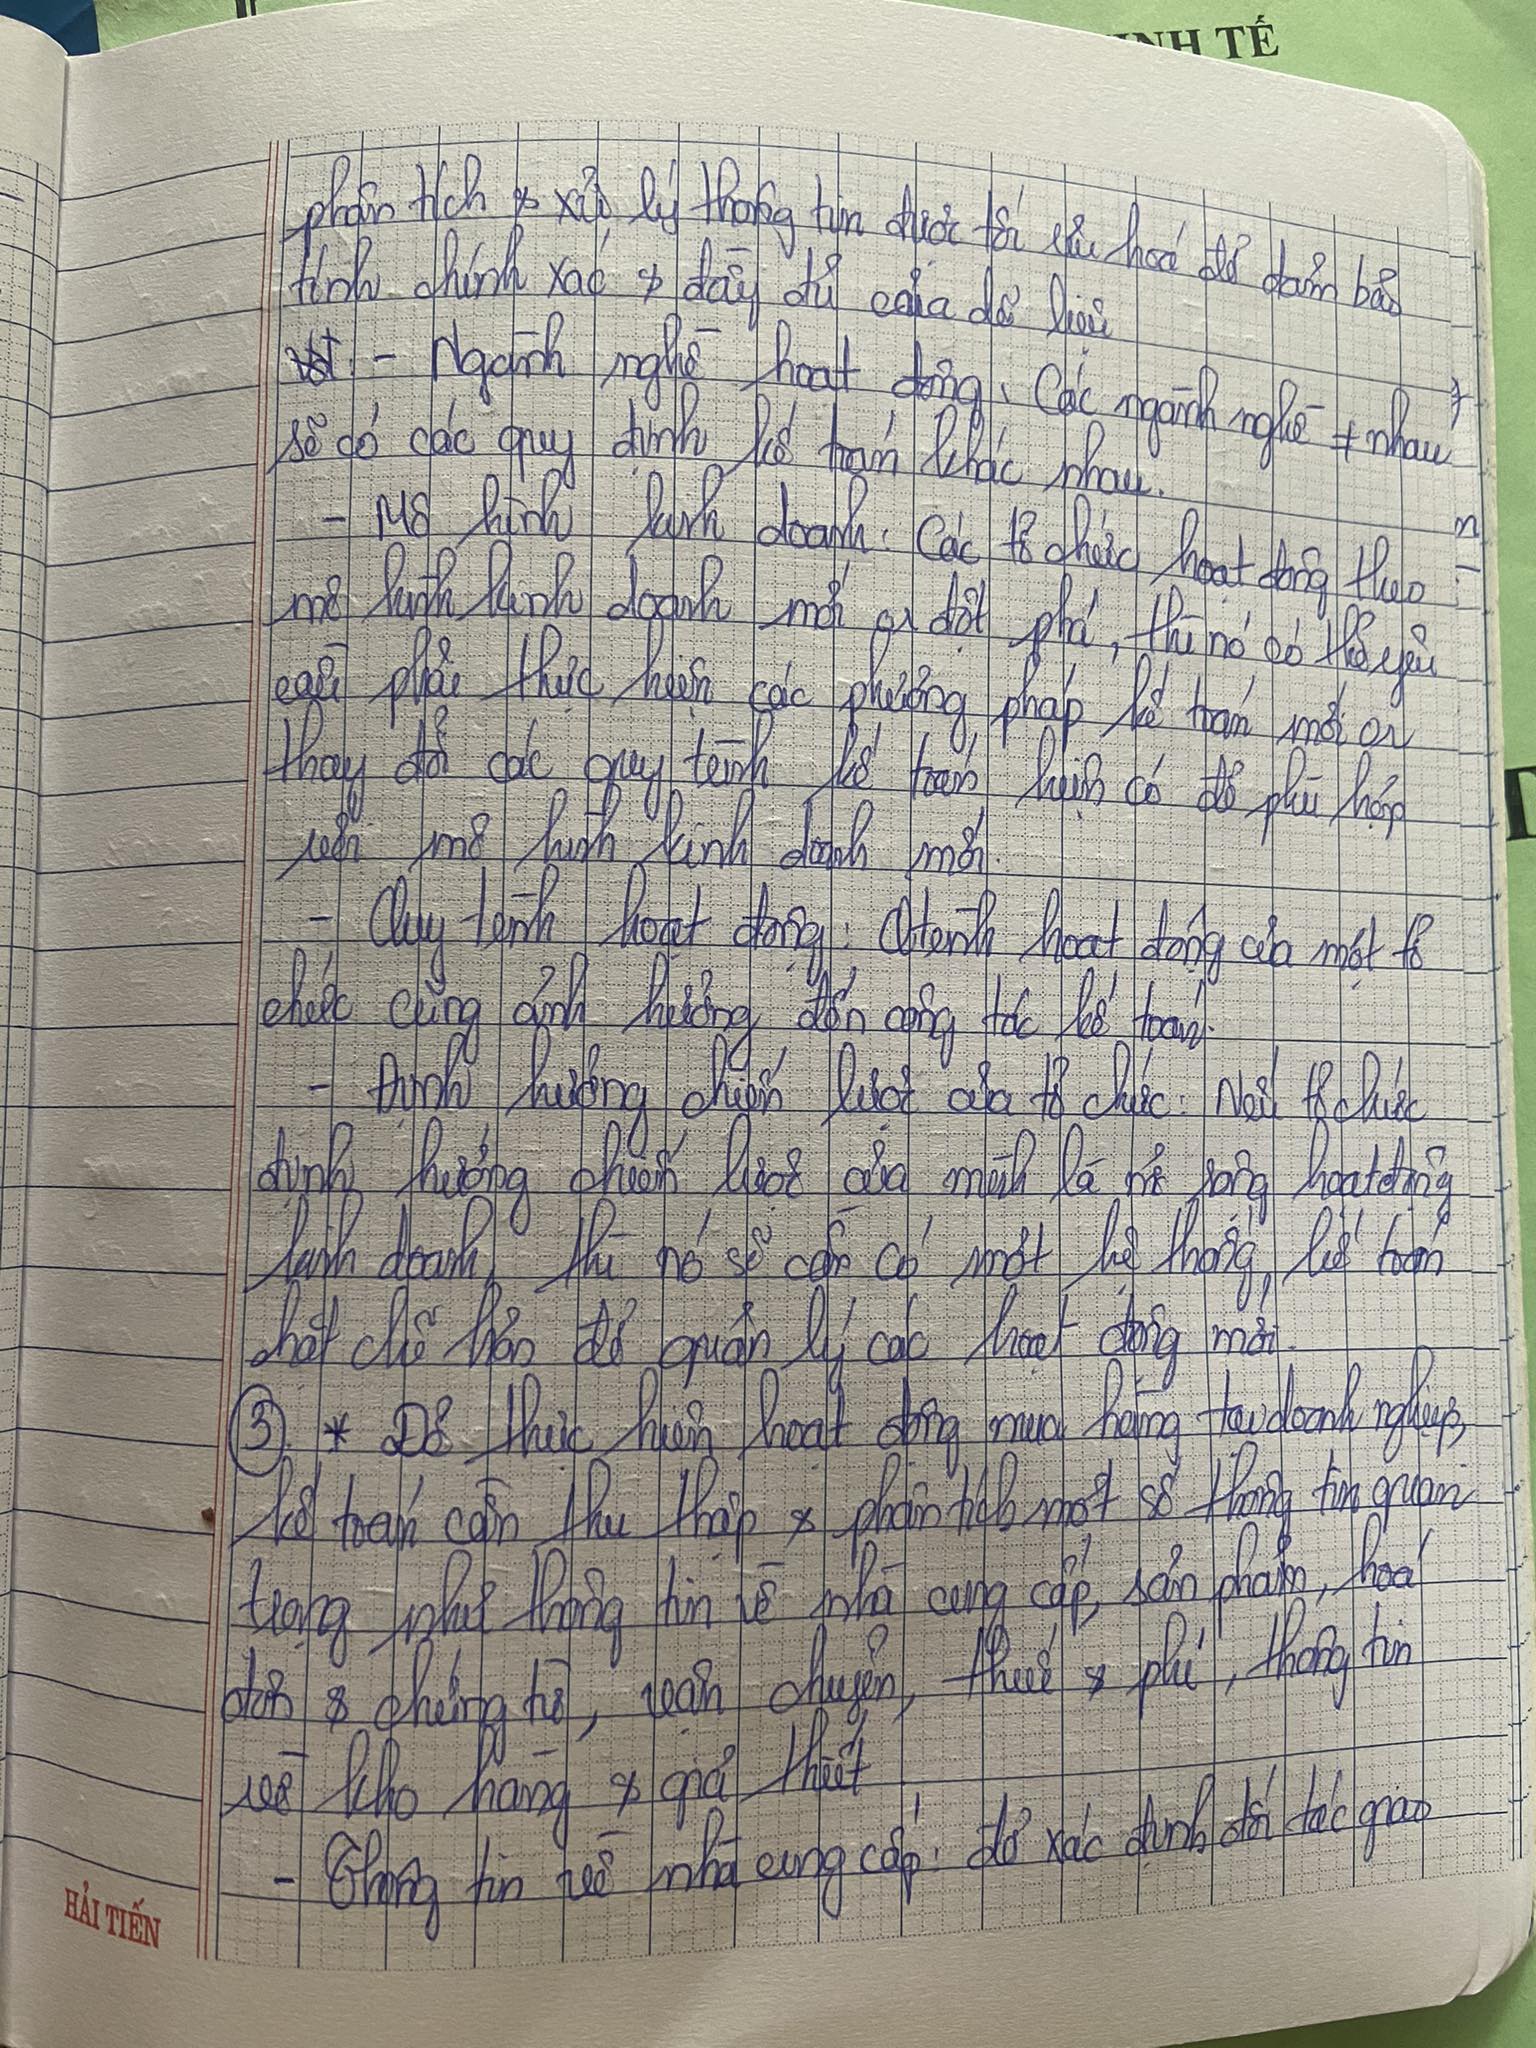 INH TẾ
phân tích & xử lý thông tin được tối ưu hoá để đảm bảo
tính chính xác & đầy đủ của dữ liệu
- Ngành nghề hoạt động: Các ngành nghề ≠ nhau
sẽ có các quy định kế toán khác nhau.
- Mô hình kinh doanh: Các tổ chức hoạt động theo
mô hình kinh doanh mới or đột phá, thì nó có thể yêu
cầu phải thực hiện các phương pháp kế toán mới or
thay đổi các quy trình kế toán hiện có để phù hợp
với mô hình kinh doanh mới.
- Quy trình hoạt động: Qtrình hoạt động của một tổ
chức cũng ảnh hưởng đến công tác kế toán.
- Định hướng chiến lượt của tổ chức: Nếu tổ chức
định hướng chiến lượt của mình là mở rộng hoạt động
kinh doanh, thì nó sẽ cần có một hệ thống kế toán
chặt chẽ hơn để quản lý các hoạt động mới.
③ * Để thực hiện hoạt động mua hàng tại doanh nghiệp,
kế toán cần thu thập & phân tích một số thông tin quan
trọng như thông tin về nhà cung cấp, sản phẩm, hoá
đơn & chứng từ, vận chuyển, thuế & phí, thông tin
về kho hàng & giả thiết
- Thông tin về nhà cung cấp: để xác định đối tác giao
HẢI TIẾN